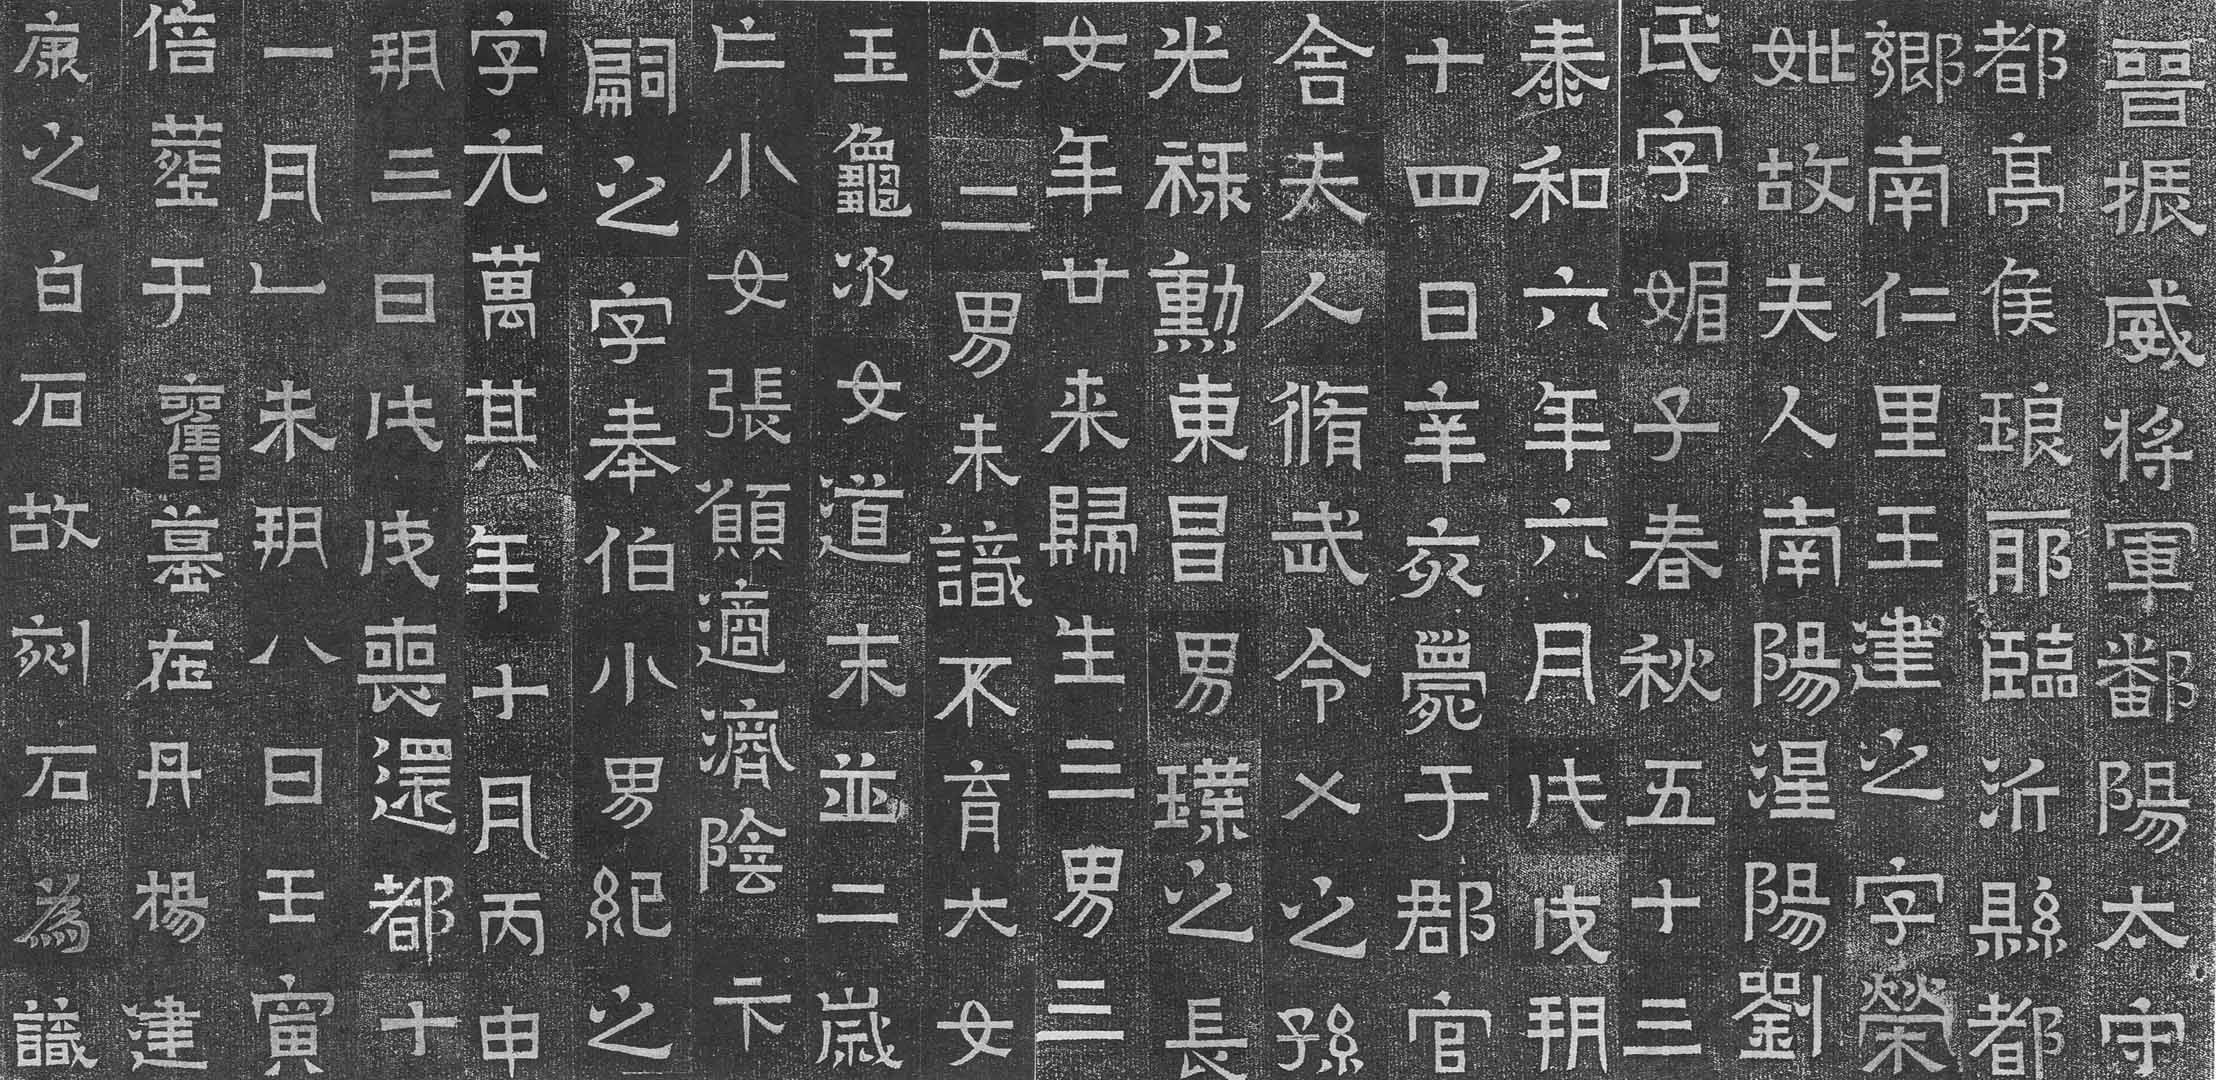 晉振威将軍鄱陽太守
都亭侯琅耶臨沂縣都
鄉南仁里王建之字榮
妣故夫人南陽涅陽劉
氏字媚子春秋五十三
泰和六年六月戊戌朔
十四日辛亥薨于郡官
舍夫人脩武令乂之孫
光祿勳東昌男璞之長
女年廿来歸生三男三
女二男未識不育大女
玉龜次女道末並二歲
亡小女張願適濟陰卞
嗣之字奉伯小男紀之
字元萬其年十月丙申
朔三日戊戌喪還都十
一月乙未朔八日壬寅
倍葬于舊墓在丹楊建
康之白石故刻石為識